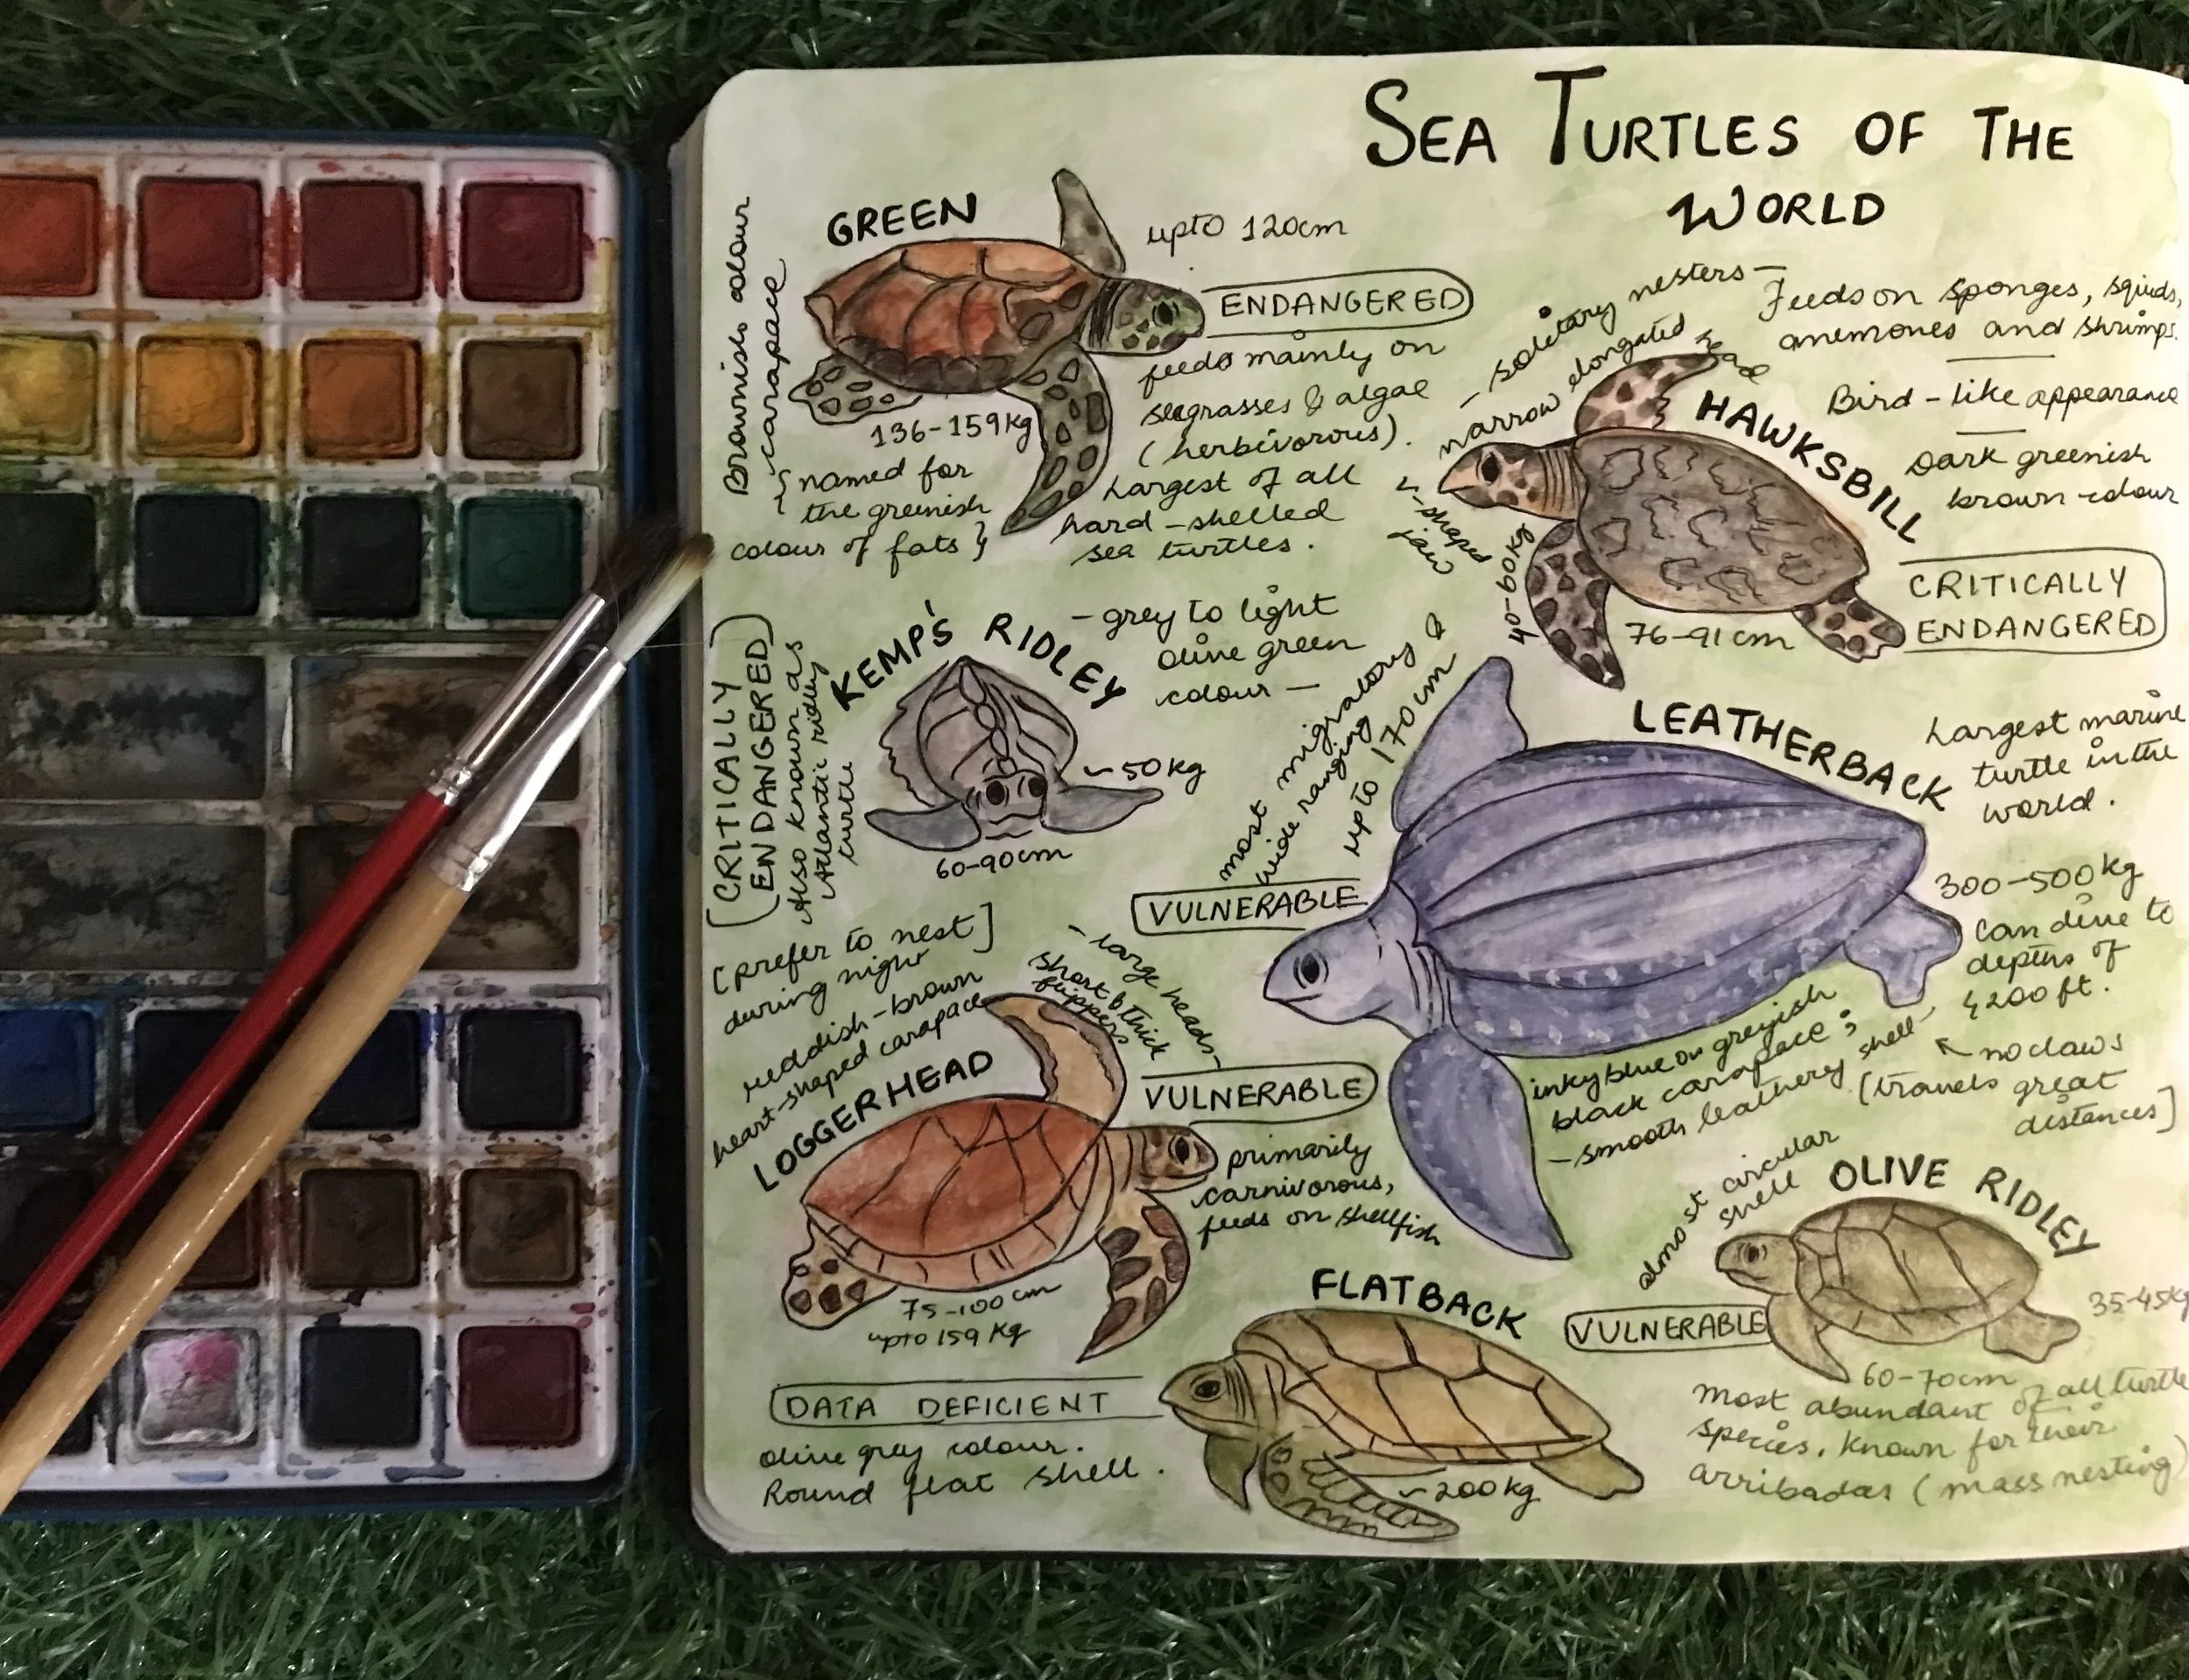 SEA TURTLES OF THE
WORLD
GREEN
upto 120cm
Brownish colour
carapace
ENDANGERED
feeds mainly on
seagrasses & algae
(herbivorous).
136-159kg
{named for
the greenish
colour of fats}
Largest of all
hard-shelled
sea turtles.
- solitary nesters -
- narrow elongated
head
Feeds on sponges, squids,
anemones and shrimps.
HAWKSBILL
Bird-like appearance
Dark greenish
brown colour
v-shaped
jaw
40-60kg
76-91cm
CRITICALLY
ENDANGERED
KEMP'S RIDLEY
- grey to light
olive green
colour -
(CRITICALLY
ENDANGERED)
Also known as
Atlantic ridley
turtle
~50kg
60-90cm
[prefer to nest]
during night
LEATHERBACK
most migratory &
wide ranging
upto 170cm
Largest marine
turtle in the
world.
VULNERABLE
300-500kg
can dive to
depths of
4200ft.
inky blue on greyish
black carapace;
- smooth leathery shell -
no claws
[travels great
distances]
reddish-brown
heart-shaped carapace
LOGGERHEAD
- large heads -
short & thick
flippers
VULNERABLE
primarily
carnivorous,
feeds on shellfish
75-100cm
upto 159kg
OLIVE RIDLEY
almost circular
shell
VULNERABLE
35-45kg
60-70cm
Most abundant of all turtle
species. Known for their
arribadas (mass nesting)
FLATBACK
DATA DEFICIENT
olive grey colour.
Round flat shell.
~200kg